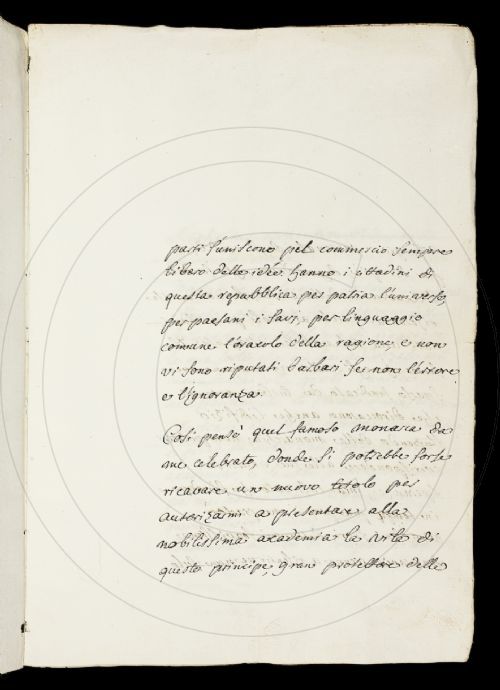 parti s'uniscono pel commercio sempre
libero delle idée hanno i cittadini di
questa repubblica per patria l'universo,
per paesani i savj, per linguaggio
comune l'oracolo della ragione, e non
vi sono riputati barbari se non l'errore
e l'ignoranza.
Così pensò quel famoso monarca da
me celebrato, donde si potrebbe forse
ricavare un nuovo titolo per
autorizarmi a presentare alla
nobilissima accademia la vita di
questo principe, gran protettore delle